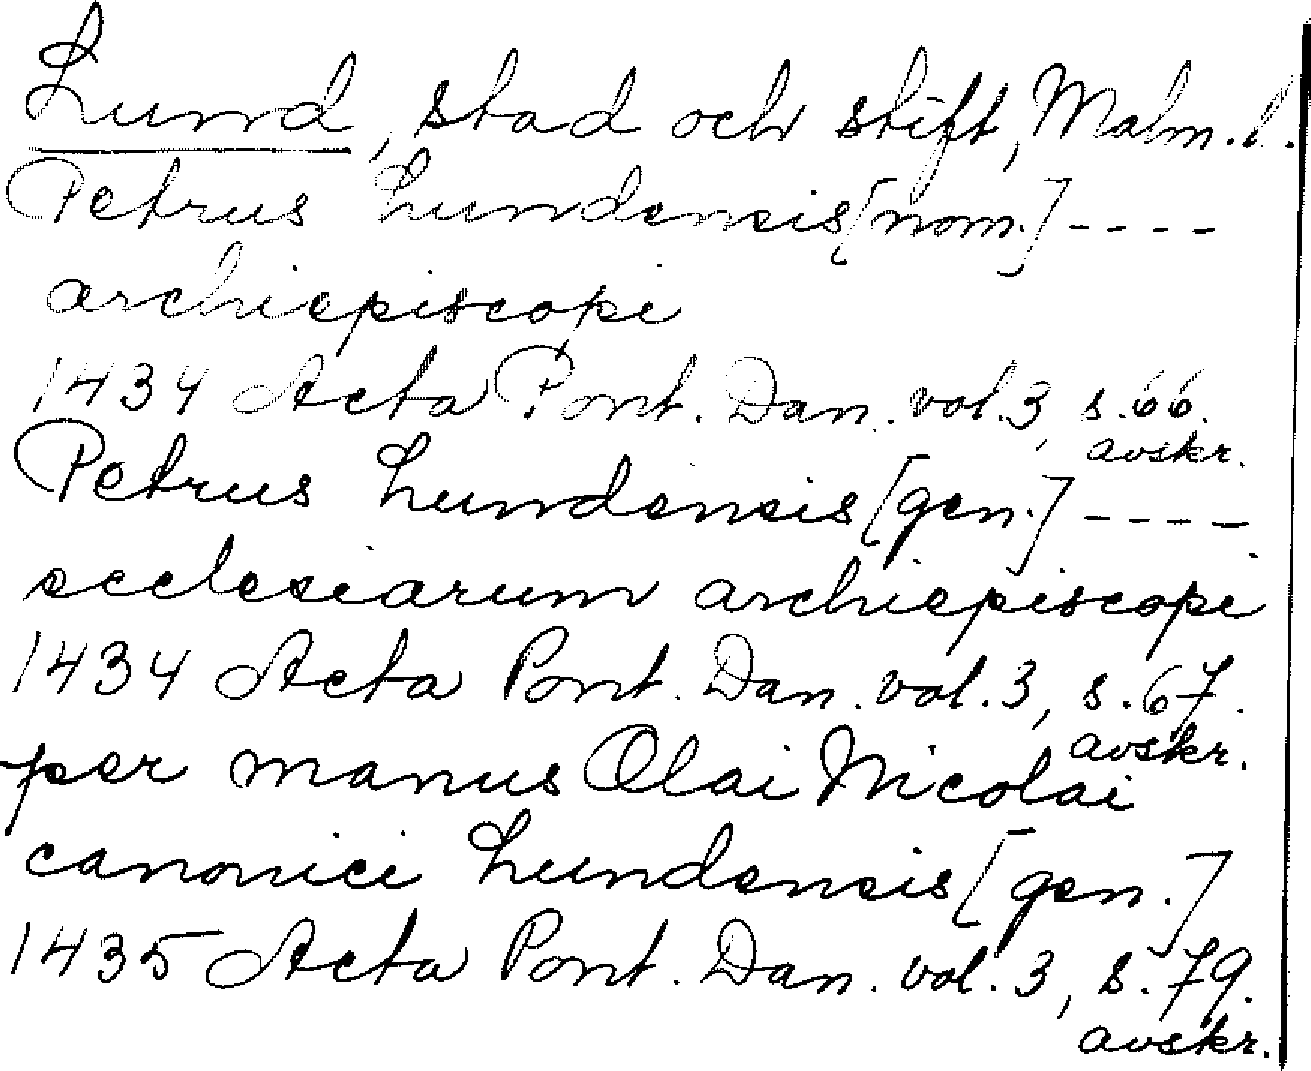 Lund, stad och stift, Malm. l.
Petrus Lundensis [nom.] ----
archiepiscope
1434 Acta Pont. Dan. vol. 3, s. 66.
avskr.
Petrus Lundensis [gen.] ----
ecclesiarum archiepiscopi
1434 Acta Pont. Dan. vol. 3, s. 67.
avskr.
per manus Olai Nicolai
canonici Lundensis [gen.]
1435 Acta Pont. Dan. vol. 3, s. 79.
avskr.